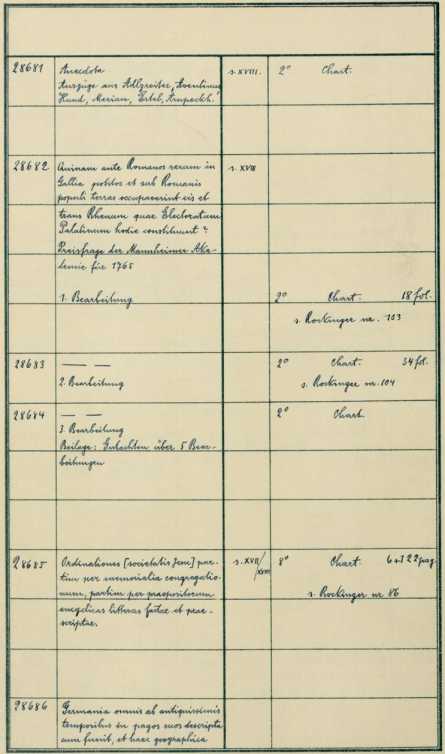 28681 Anecdota s. XVIII. 2° Chart.
Auszüge aus Adlzreiter, Aventinus
Hund, Merian, Ertel, Arnpeckh.
28682 Quinam ante Romanos rerum in s. XVIII
Gallia potitos et sub Romanis
populi terras occupaverint cis et
trans Rhenum quae Electoratum
Palatinum hodie constituunt?
Preisfrage der Mannheimer Aka-
demie für 1765
1. Bearbeitung 2° Chart. 18 fol.
s. Rockinger nr. 103
28683 — — 2° Chart. 34 fol.
2. Bearbeitung s. Rockinger nr. 104
28684 — — 2° Chart
3. Bearbeitung
Beilage: Gutachten über 5 Bear-
beitungen
28685 Ordinationes [societatis Jesu] par- s. XVII/XVIII 8° Chart. 6+122 pag.
tim per memorialia congregatio-
num, partim per praepositorum
s. Rockinger nr 86
litteras factae et prae-
scriptae.
28686 Germania omnis ab antiquissimis
temporibus in pagos suos descripta
cum fuerit, et haec geographica